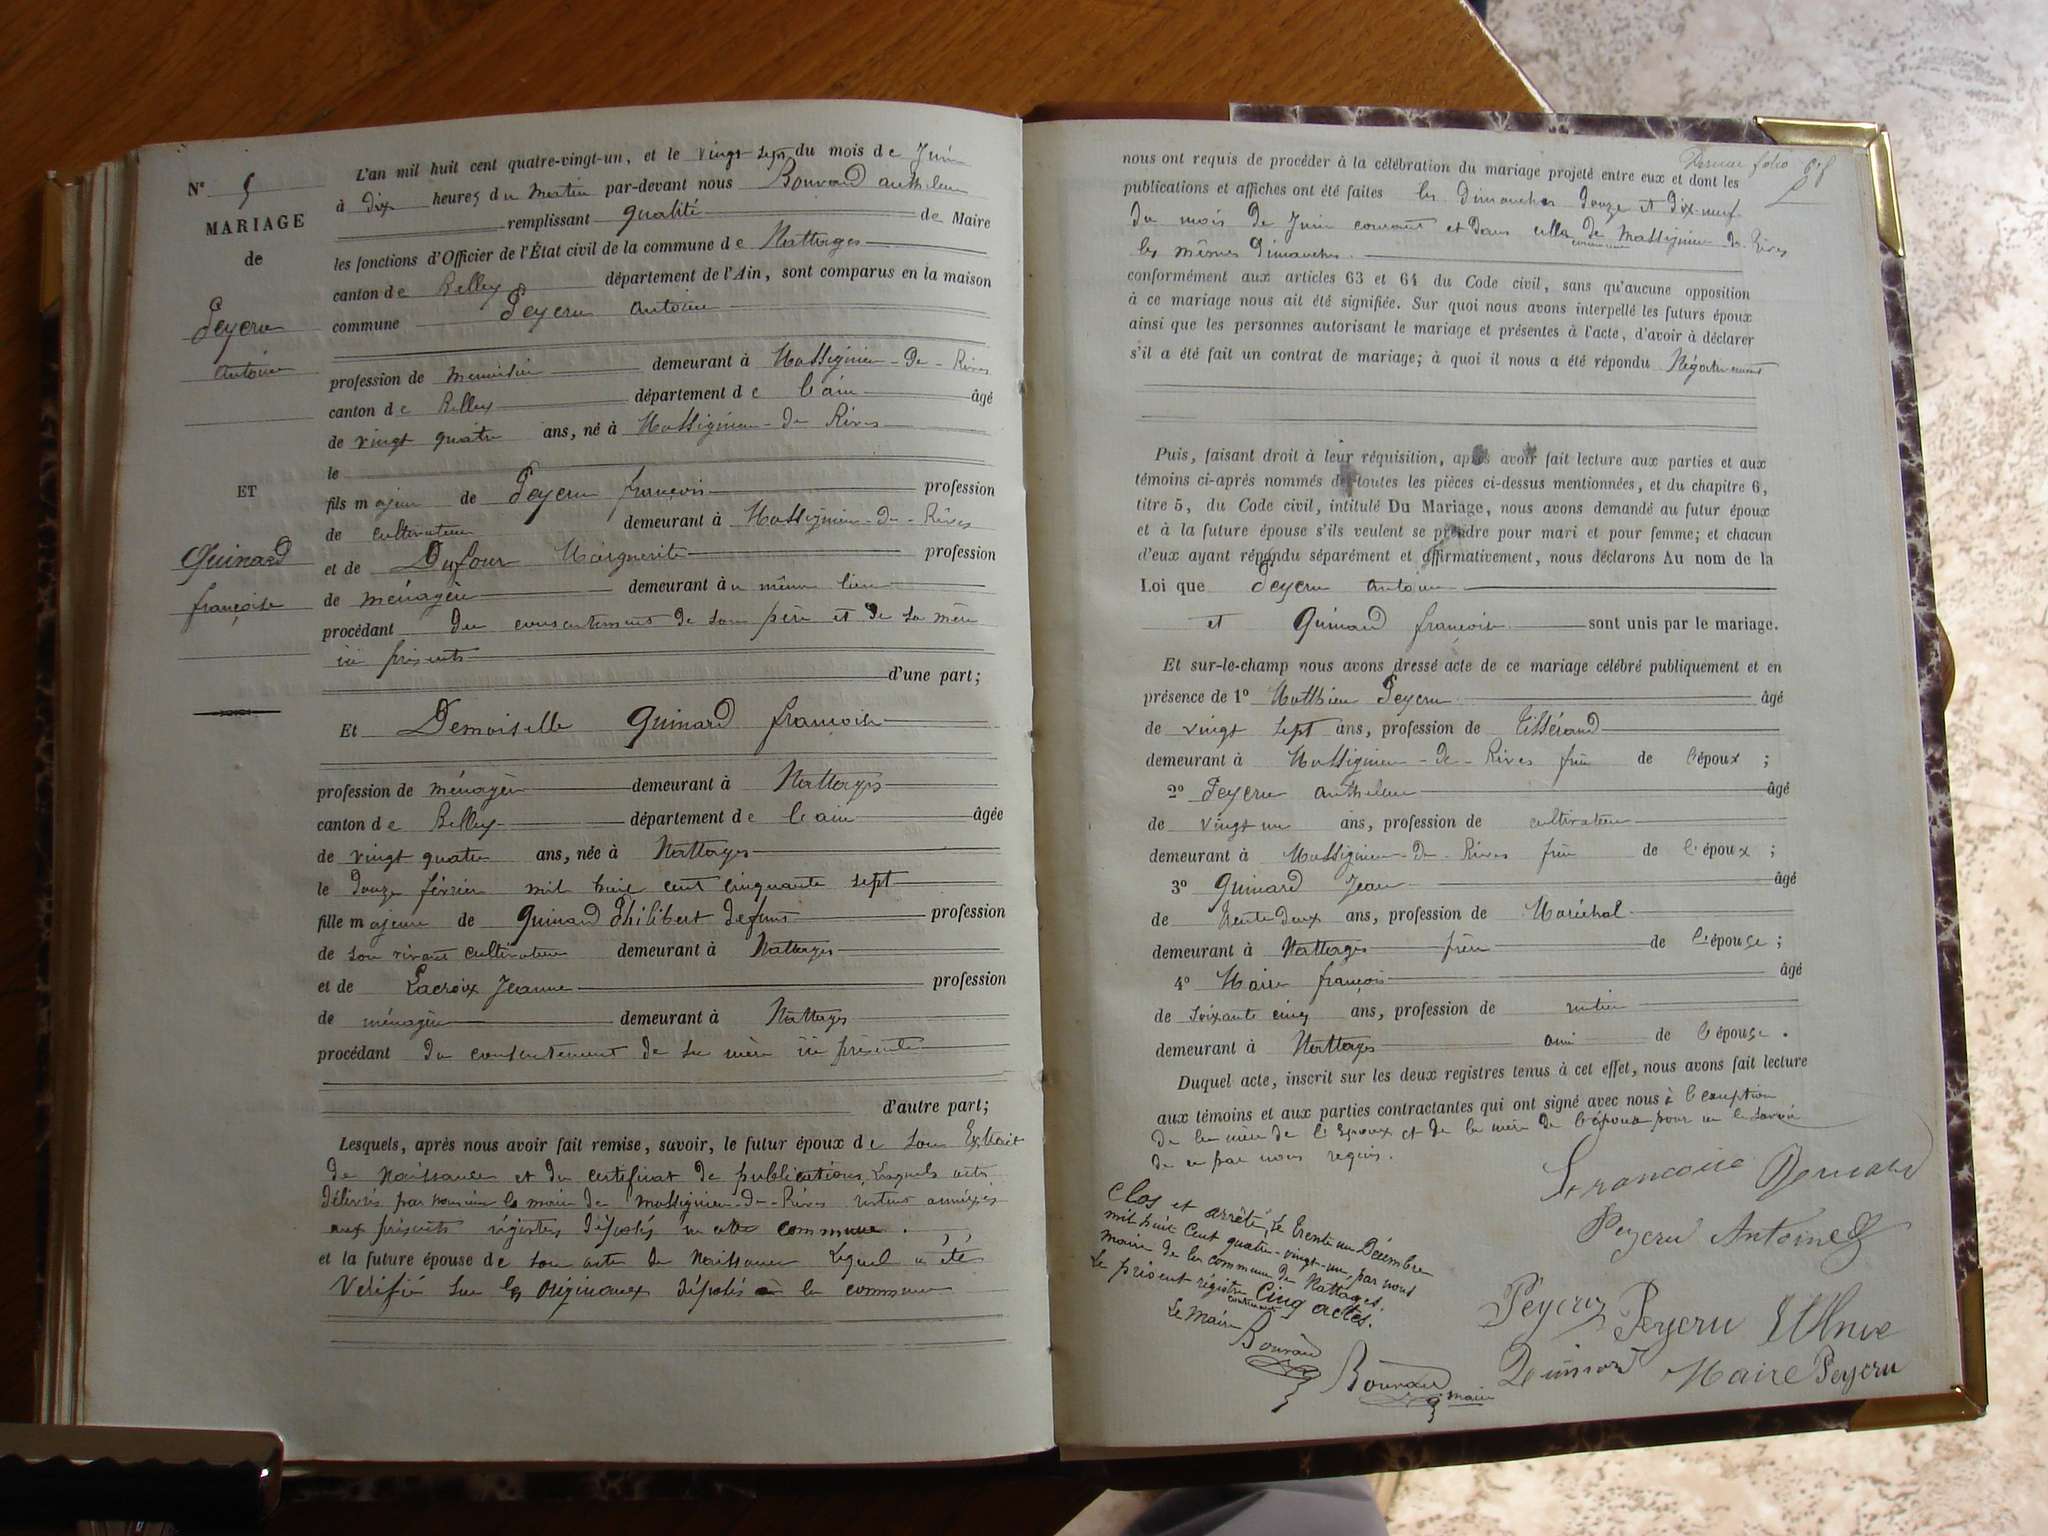 N° 5
MARIAGE
de
Peycru
Antoine
ET
Guinard
françoise
L'an mil huit cent quatre-vingt-un, et le vingt sept du mois de Juin
à dix heures du matin par-devant nous Bouvard anthelme
remplissant qualité de Maire
les fonctions d'Officier de l'État civil de la commune de Nattages
canton de Belley département de l'Ain, sont comparus en la maison
commune Peycru antoine
profession de menuisier demeurant à Massignieu-de-Rives
canton de Belley département de l'ain âgé
de vingt quatre ans, né à Massignieu-de Rives
le
fils majeur de Peycru françois profession
de cultivateur demeurant à Massignieu-de-Rives
et de Dufour Marguerite profession
de ménagère demeurant au même lieu
procédant du consentement de son père et de sa mère
ici présents
d'une part;
Et Demoiselle Guinard françoise
profession de ménagère demeurant à Nattages
canton de Belley département de l'ain âgée
de vingt quatre ans, née à Nattages
le douze février mil huit cent cinquante sept
fille majeure de Guinard Philibert defunt profession
de son vivant cultivateur demeurant à Nattages
et de Lacroix Jeanne profession
de ménagère demeurant à Nattages
procédant du consentement de sa mère ici presente
d'autre part;
Lesquels, après nous avoir fait remise, savoir, le futur époux de son Extrait
de Naissance et du certificat de publications, Lesquels acts
délivrés par monsieur le maire de Massignieu-de-Rives restent annéxés
aux présents régistres déposés en cette commune.
et la future épouse de son acte de Naissance Lequel a été
Vérifié sur les Originaux déposés à la commune
nous ont requis de procéder à la célébration du mariage projeté entre eux et dont les
publications et affiches ont été faites les Dimanches Douze et Dix-neuf
du mois de Juin courant et dans celle de Massignieu-de-Rives
commune
les mêmes Dimanches.
conformément aux articles 63 et 64 du Code civil, sans qu'aucune opposition
à ce mariage nous ait été signifiée. Sur quoi nous avons interpellé les futurs époux
ainsi que les personnes autorisant le mariage et présentes à l'acte, d'avoir à déclarer
s'il a été fait un contrat de mariage; à quoi il nous a été répondu Négativement
Puis, faisant droit à leur réquisition, après avoir fait lecture aux parties et aux
témoins ci-après nommés de toutes les pièces ci-dessus mentionnées, et du chapitre 6,
titre 5, du Code civil, intitulé Du Mariage, nous avons demandé au futur époux
et à la future épouse s'ils veulent se prendre pour mari et pour femme; et chacun
d'eux ayant répondu séparément et affirmativement, nous déclarons Au nom de la
Loi que Peycru antoine
et Guinard françoise sont unis par le mariage.
Et sur-le-champ nous avons dressé acte de ce mariage célébré publiquement et en
présence de 1° Matthieu Peycru âgé
de vingt sept ans, profession de tissérand
demeurant à Massignieu-de-Rives frère de l'époux ;
2° Peycru anthelme âgé
de vingt un ans, profession de cultivateur
demeurant à Massignieu-de-Rives frère de l'époux ;
3° Guinard Jean âgé
de trente deux ans, profession de Maréchal
demeurant à Nattages frère de l'épouse ;
4° Maire françois âgé
de Soixante cinq ans, profession de rentier
demeurant à Nattages ami de l'épouse .
Duquel acte, inscrit sur les deux registres tenus à cet effet, nous avons fait lecture
aux témoins et aux parties contractantes qui ont signé avec nous à l'exception
de la mère de l'Epoux et de la mère de l'épouse pour ne le savoir
de ce par nous requis.
Peycru Antoine
Peycru Peycru
Maire Peycru
Clos et arrêté, le trente un Décembre
mil huit Cent quatre-vingt-un, par nous
maire de la commune de Nattages.
Le présent régistre contenant Cinq actes.
Le Maire
Bouvard
Bouvard maire